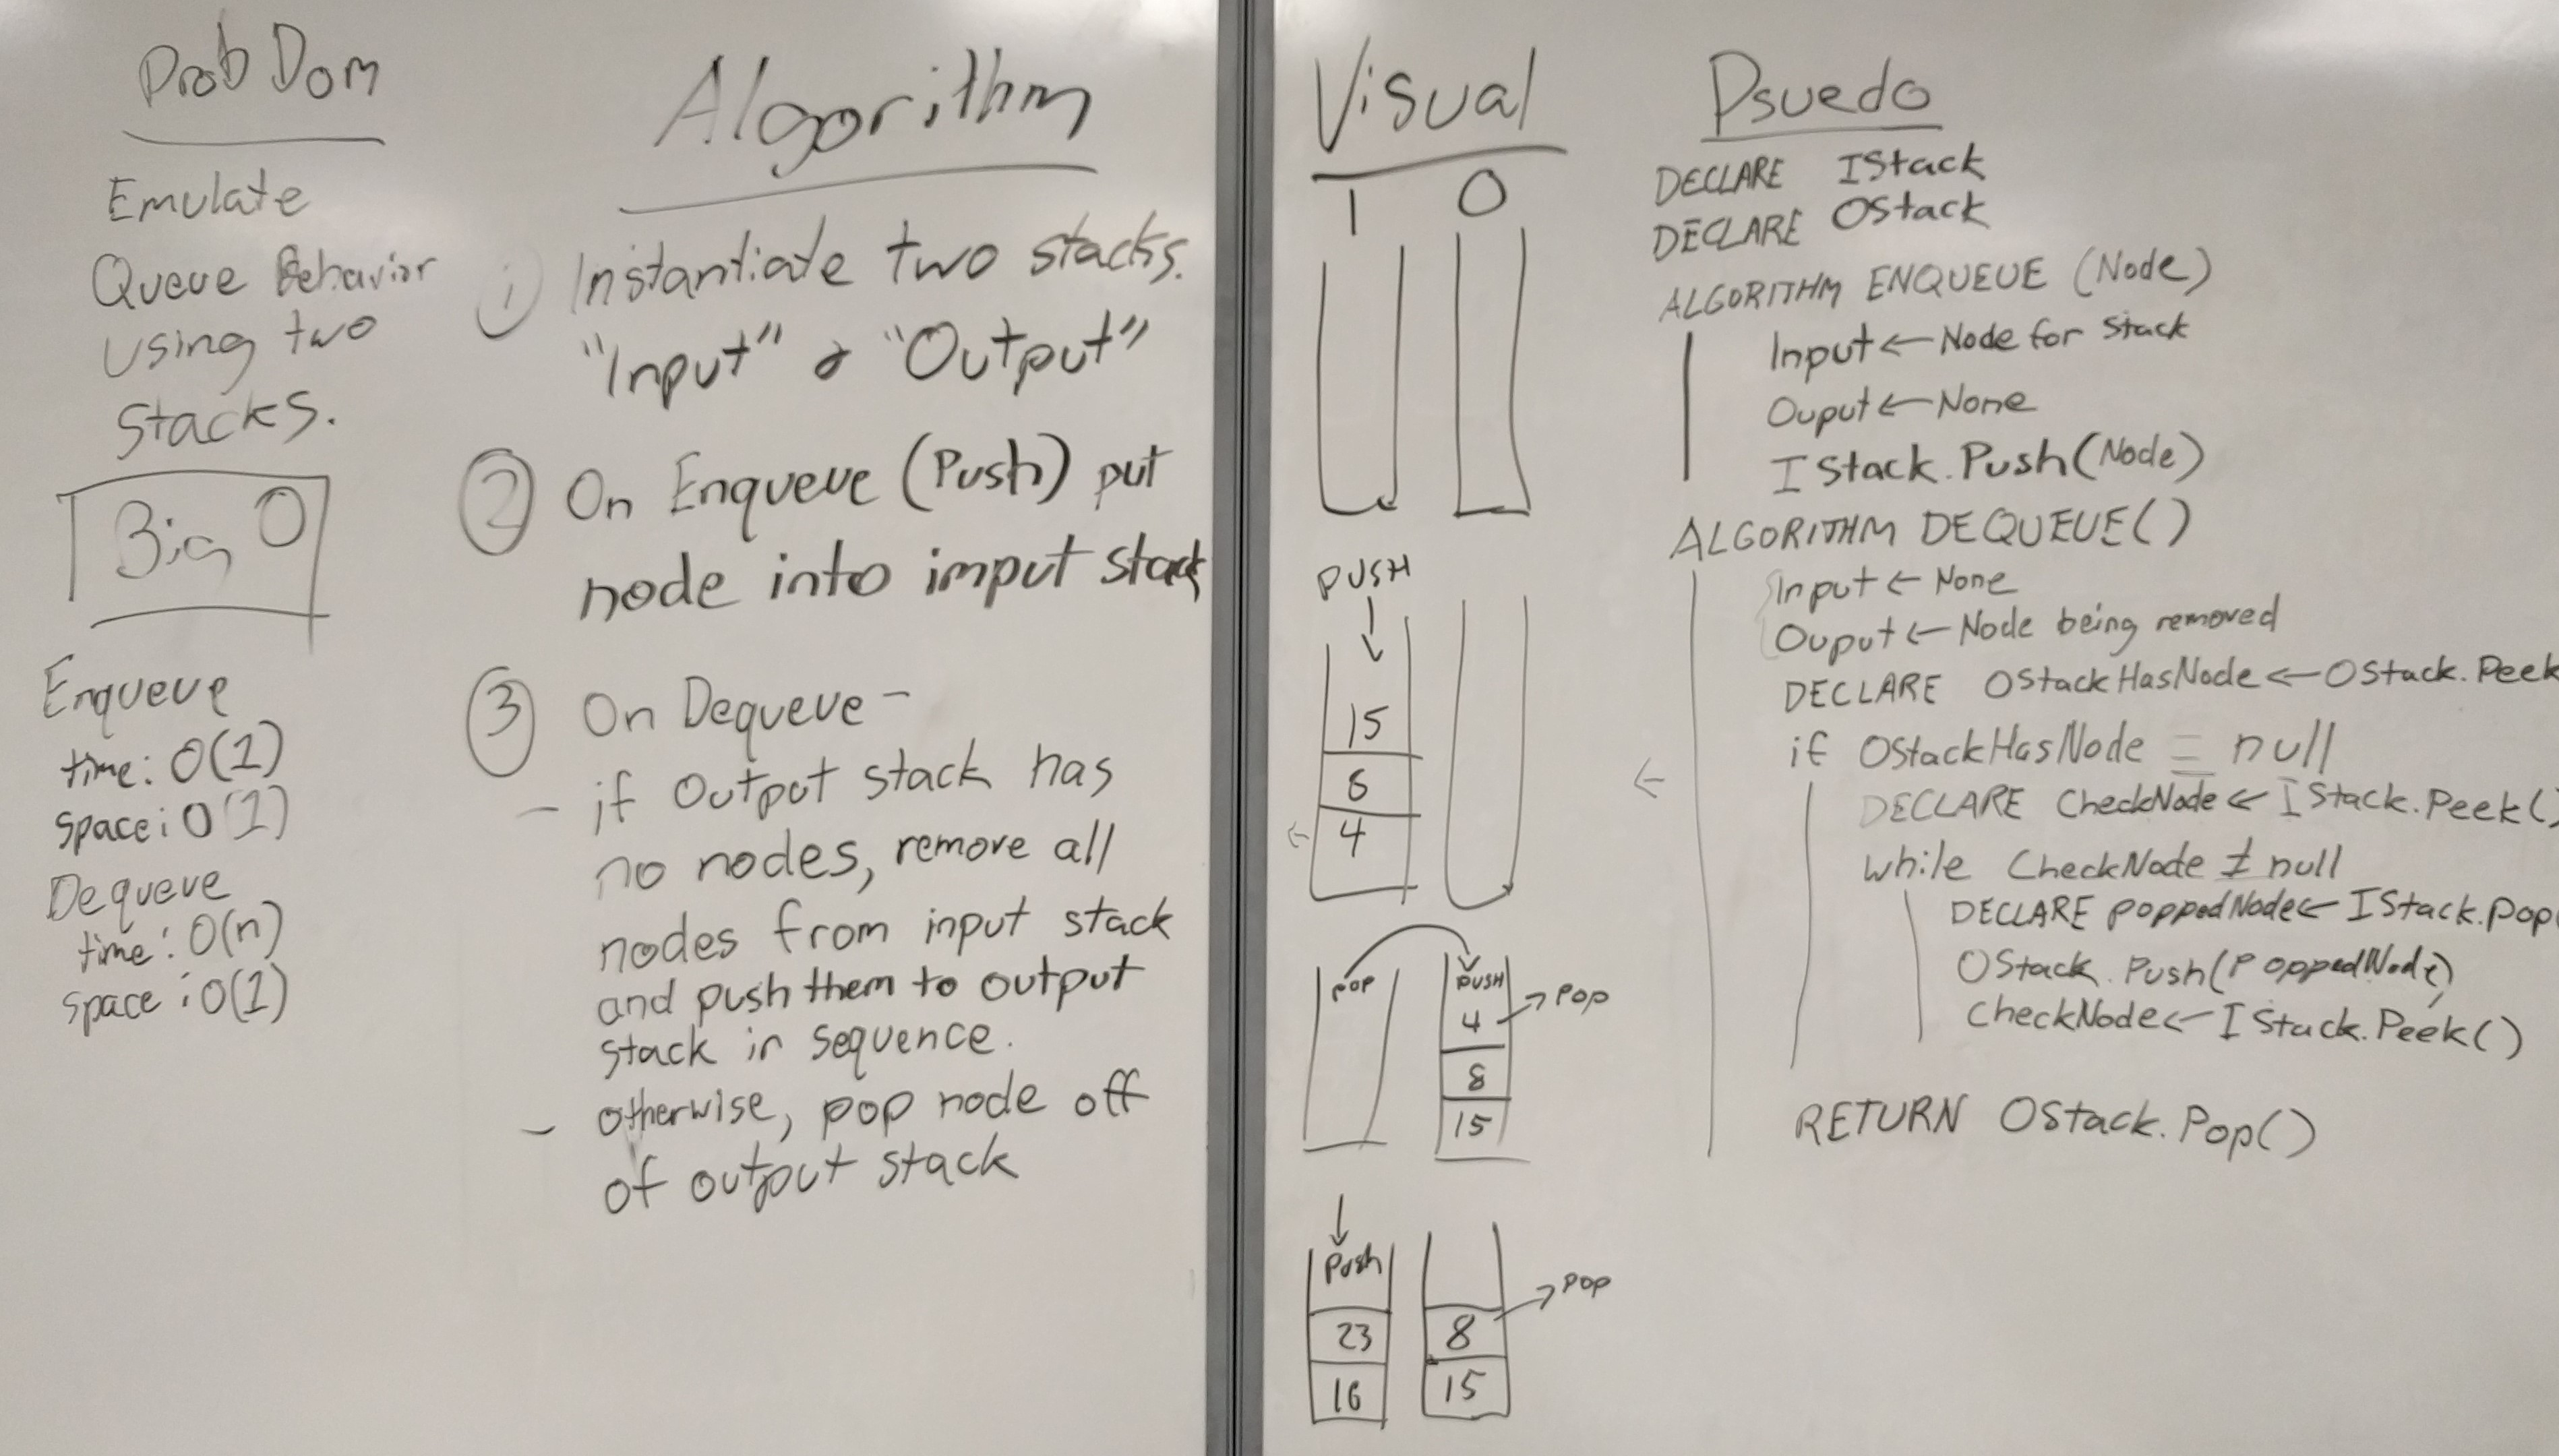 Prob Dom
Emulate
Queue Behavior
Using two
Stacks.
Big O
Enqueue
time: O(1)
Space: O(1)
Dequeue
time: O(n)
Space: O(1)
Algorithm
① Instantiate two stacks.
"Input" & "Output"
② On Enqueue (Push) put
node into imput stack
③ On Dequeue -
- if Output stack has
no nodes, remove all
nodes from input stack
and push them to output
stack in sequence.
- otherwise, pop node off
of output stack
Visual
I O
PUSH
↓
15
8
←
4
POP PUSH
4 → POP
8
15
↓
Push
23 8 → POP
16 15
Psuedo
DECLARE IStack
DECLARE OStack
ALGORITHM ENQUEUE (Node)
Input ← Node for Stack
Ouput ← None
IStack.Push(Node)
ALGORITHM DEQUEUE()
Input ← None
Ouput ← Node being removed
DECLARE OStackHasNode ← OStack.Peek
← if OStackHasNode = null
DECLARE CheckNode ← IStack.Peek()
while CheckNode ≠ null
DECLARE poppedNode ← IStack.Pop(
OStack.Push(PoppedNode)
CheckNode ← IStack.Peek()
RETURN OStack.Pop()